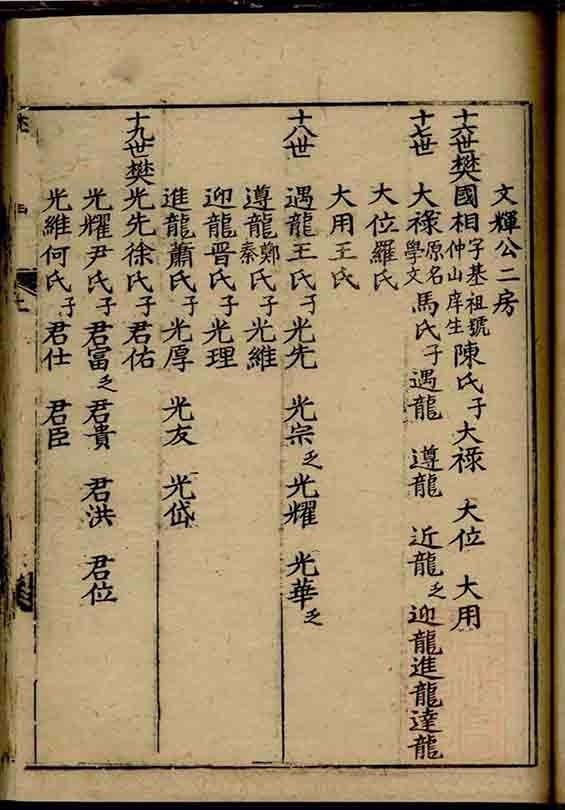 文輝公二房
十六世樊國相字基祖號仲山庠生陳氏子大祿 大位 大用
十七世 大祿原名學文馬氏子遇龍 遵龍 近龍乏 迎龍進龍達龍
大位羅氏
大用王氏
十八世 遇龍王氏子光先 光宗乏光耀 光華乏
遵龍鄭秦氏子光維
迎龍晋氏子光理
進龍蕭氏子光厚 光友 光岱
十九世樊光先徐氏子君佑
光耀尹氏子君富乏君貴 君洪 君位
光維何氏子君仕 君臣